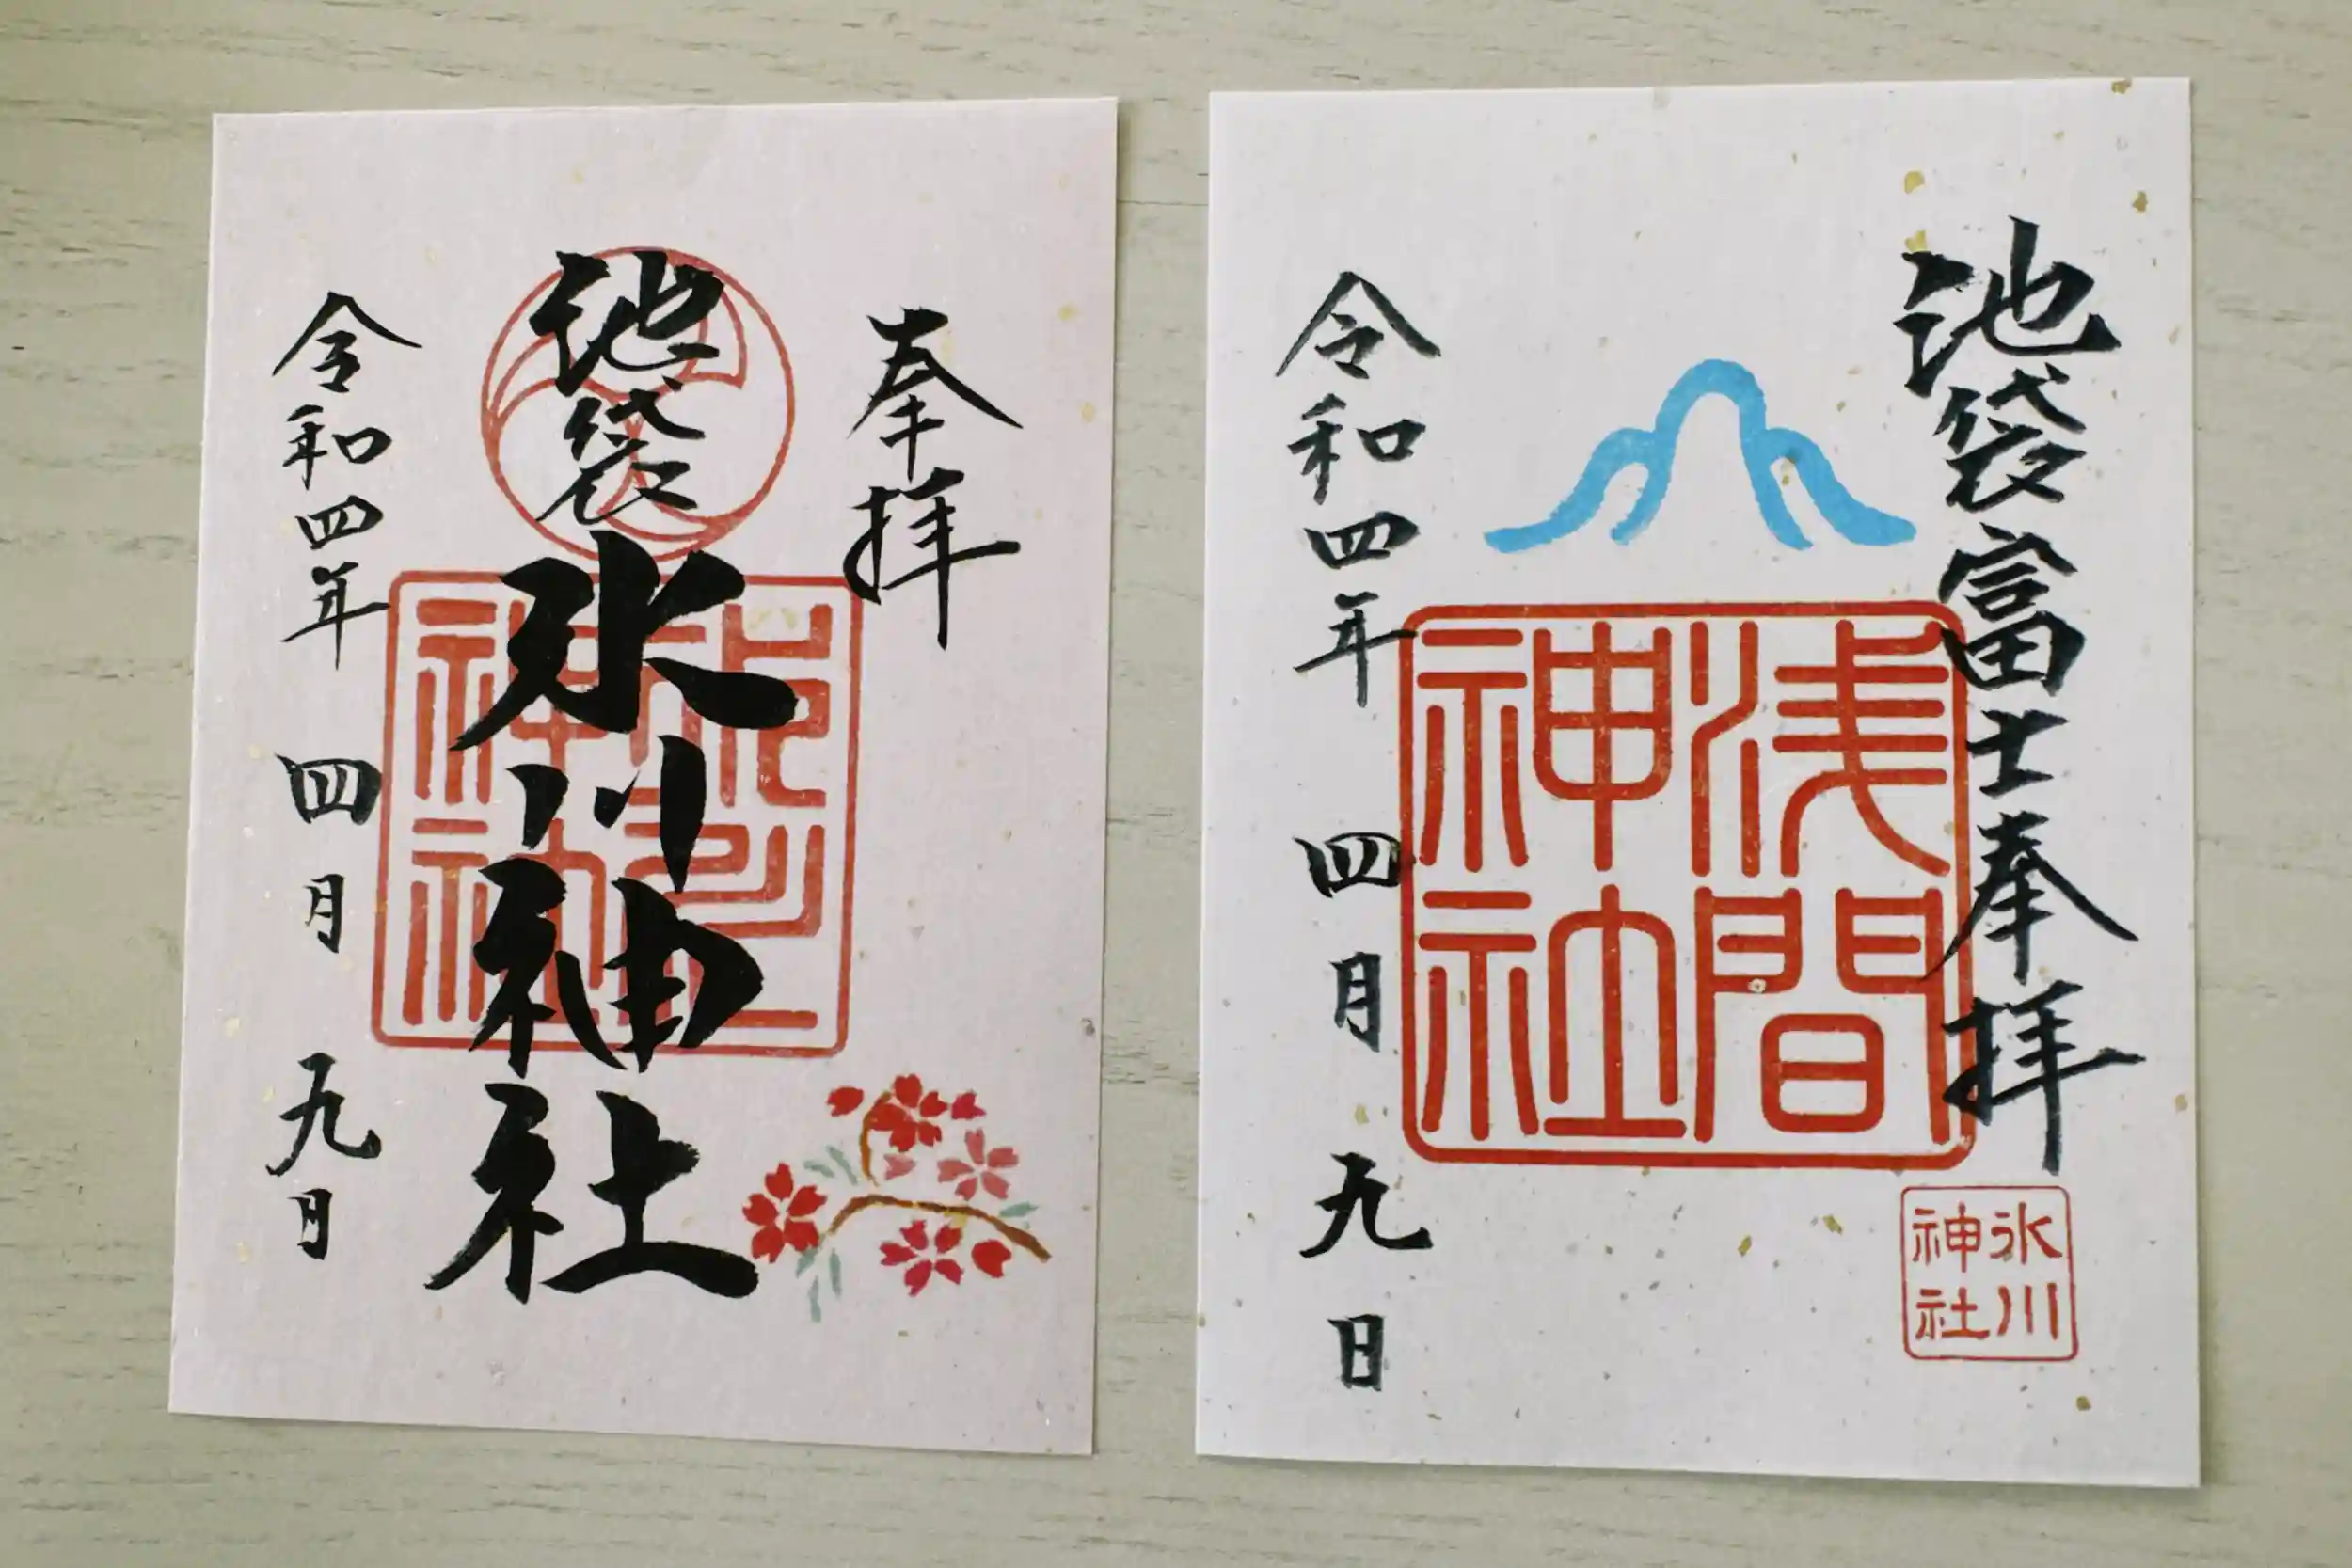 奉拝
池袋氷川神社
令和四年 四月 九日
池袋富士奉拝
氷川
神社
浅間
神社
令和四年 四月 九日